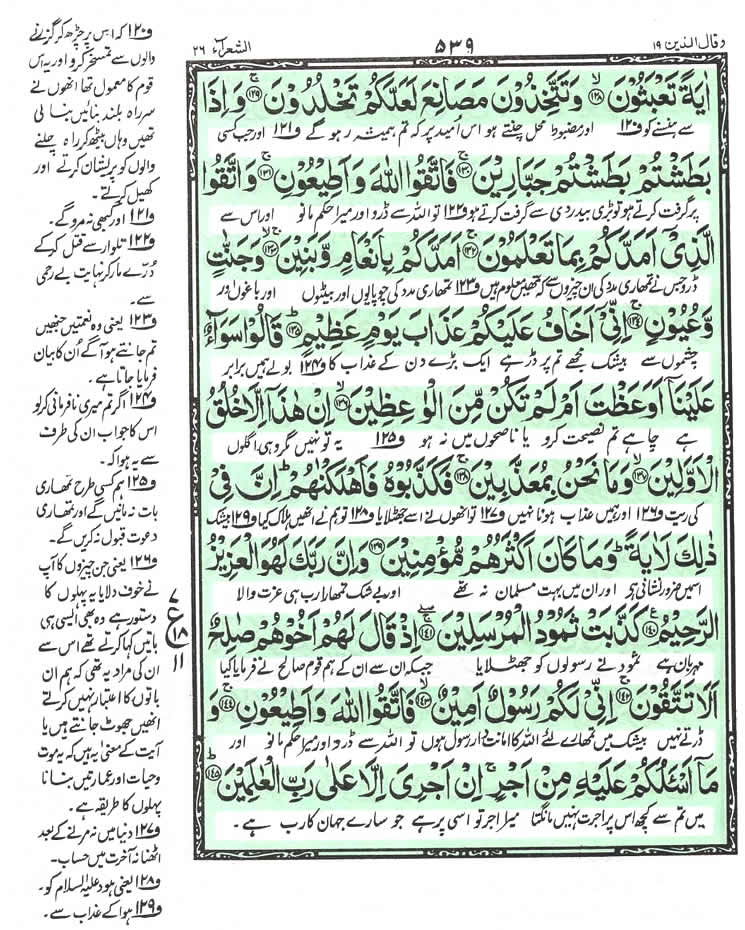 وقال الذين ١٩
٥٣٩
الشعرآء ٢٦
اٰيَةً تَعْبَثُوْنَ ﴿١٢٨﴾ وَتَتَّخِذُوْنَ مَصَانِعَ لَعَلَّكُمْ تَخْلُدُوْنَ ﴿١٢٩﴾ وَاِذَا
سے ہنسنے کو ف١٢٠ اور مضبوط محل چنتے ہو اس اُمید پر کہ تم ہمیشہ رہو گے ف١٢١ اور جب کسی
بَطَشْتُمْ بَطَشْتُمْ جَبَّارِيْنَ ﴿١٣٠﴾ فَاتَّقُوا اللّٰهَ وَاَطِيْعُوْنِ ﴿١٣١﴾ وَاتَّقُوا
پر گرفت کرتے ہو تو بڑی بیدردی سے گرفت کرتے ہو ف١٢٢ تو اللہ سے ڈرو اور میرا حکم مانو اور اس سے
الَّذِيْۤ اَمَدَّكُمْ بِمَا تَعْلَمُوْنَ ﴿١٣٢﴾ اَمَدَّكُمْ بِاَنْعَامٍ وَّبَنِيْنَ ﴿١٣٣﴾ وَجَنّٰتٍ
ڈرو جس نے تمھاری مدد کی ان چیزوں سے کہ تمھیں معلوم ہیں ف١٢٣ تمھاری مدد کی چوپایوں اور بیٹوں اور باغوں اور
وَّعُيُوْنٍ ﴿١٣٤﴾ اِنِّيْۤ اَخَافُ عَلَيْكُمْ عَذَابَ يَوْمٍ عَظِيْمٍ ﴿١٣٥﴾ قَالُوْا سَوَآءٌ
چشموں سے بیشک مجھے تم پر ڈر ہے ایک بڑے دن کے عذاب کا ف١٢٤ بولے ہمیں برابر
عَلَيْنَاۤ اَوَعَظْتَ اَمْ لَمْ تَكُنْ مِّنَ الْوٰعِظِيْنَ ﴿١٣٦﴾ اِنْ هٰذَاۤ اِلَّا خُلُقُ
ہے چاہے تم نصیحت کرو یا ناصحوں میں نہ ہو ف١٢٥ یہ تو نہیں مگر وہی اگلوں
الْاَوَّلِيْنَ ﴿١٣٧﴾ وَمَا نَحْنُ بِمُعَذَّبِيْنَ ﴿١٣٨﴾ فَكَذَّبُوْهُ فَاَهْلَكْنٰهُمْ ؕ اِنَّ فِيْ
کی ریت ف١٢٦ اور ہمیں عذاب ہونا نہیں ف١٢٧ تو انھوں نے اسے جھٹلایا ف١٢٨ تو ہم نے انھیں ہلاک کیا ف١٢٩ بیشک
ذٰلِكَ لَاٰيَةً ؕ وَمَا كَانَ اَكْثَرُهُمْ مُّؤْمِنِيْنَ ﴿١٣٩﴾ وَاِنَّ رَبَّكَ لَهُوَ الْعَزِيْزُ
اس میں ضرور نشانی ہے اور ان میں بہت مسلمان نہ تھے اور بے شک تمھارا رب ہی عزت والا
الرَّحِيْمُ ﴿١٤٠﴾ كَذَّبَتْ ثَمُوْدُ الْمُرْسَلِيْنَ ﴿١٤١﴾ اِذْ قَالَ لَهُمْ اَخُوْهُمْ صٰلِحٌ
مہربان ہے ثمود نے رسولوں کو جھٹلایا جبکہ ان سے ان کے ہم قوم صالح نے فرمایا کیا
اَلَا تَتَّقُوْنَ ﴿١٤٢﴾ اِنِّيْ لَكُمْ رَسُوْلٌ اَمِيْنٌ ﴿١٤٣﴾ فَاتَّقُوا اللّٰهَ وَاَطِيْعُوْنِ ﴿١٤٤﴾ وَ
ڈرتے نہیں بیشک میں تمھارے لئے اللہ کا امانت دار رسول ہوں تو اللہ سے ڈرو اور میرا حکم مانو اور
مَاۤ اَسْـَٔلُكُمْ عَلَيْهِ مِنْ اَجْرٍ ۚ اِنْ اَجْرِيَ اِلَّا عَلٰى رَبِّ الْعٰلَمِيْنَ ﴿١٤٥﴾
میں تم سے کچھ اس پر اجرت نہیں مانگتا میرا اجر تو اسی پر ہے جو سارے جہان کا رب ہے ۔
ع
١٨
١١
ف١٢٠ کہ اس پر چڑھ کر گزرنے
والوں سے تمسخر کرو اور یہ اس
قوم کا معمول تھا انھوں نے
سر راہ بلند بنائیں بنا لی
تھیں وہاں بیٹھ کر راہ چلنے
والوں کو پریشان کرتے اور
کھیل کرتے۔
ف١٢١ اور کبھی نہ مرو گے۔
ف١٢٢ تلوار سے قتل کر کے
دُرّے مار کر نہایت بے رحمی
سے۔
ف١٢٣ یعنی وہ نعمتیں جنھیں
تم جانتے ہو آگے اُن کا بیان
فرمایا جاتا ہے۔
ف١٢٤ اگر تم میری نافرمانی کرو
اس کا جواب ان کی طرف
سے یہ ہوا کہ۔
ف١٢٥ ہم کسی طرح تمھاری
بات نہ مانیں گے اور تمھاری
دعوت قبول نہ کریں گے۔
ف١٢٦ یعنی جن چیزوں کا آپ
نے خوف دلایا یہ پہلوں کا
دستور ہے وہ بھی ایسی ہی
باتیں کہا کرتے تھے اس سے
ان کی مراد یہ تھی کہ ہم ان
باتوں کا اعتبار نہیں کرتے
انھیں جھوٹ جانتے ہیں یا
آیت کے معنیٰ یہ ہیں کہ یہ موت
وحیات اور عمارتیں بنانا
پہلوں کا طریقہ ہے۔
ف١٢٧ دنیا میں نہ مرنے کے بعد
اٹھنا نہ آخرت میں حساب۔
ف١٢٨ یعنی ہود علیہ السلام کو۔
ف١٢٩ ہوا کے عذاب سے۔